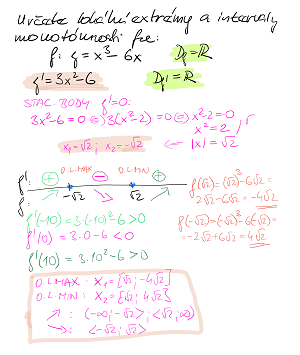 Určete lokální extrémy a intervaly
monotónnosti fce:
f: y = x³ - 6x  Df = ℝ
y' = 3x² - 6  Df' = ℝ
STAC. BODY y' = 0:
3x² - 6 = 0 ⇔ 3(x² - 2) = 0 ⇔ x² - 2 = 0
x² = 2 /√
x₁ = √2; x₂ = -√2 ← |x| = √2
O.L.MAX O.L.MIN
f': + - +
f: -√2 √2
f'(-10) = 3·(-10)² - 6 > 0
f'(0) = 3·0 - 6 < 0
f'(10) = 3·10² - 6 > 0
f(√2) = (√2)³ - 6√2 =
2√2 - 6√2 = -4√2
f(-√2) = (-√2)³ - 6(-√2) =
= -2√2 + 6√2 = 4√2
O.L.MAX: X₁ = [√2; -4√2]
O.L.MIN: X₂ = [√2; 4√2]
↗: (-∞; -√2⟩; ⟨√2; ∞)
↘: ⟨-√2; √2⟩